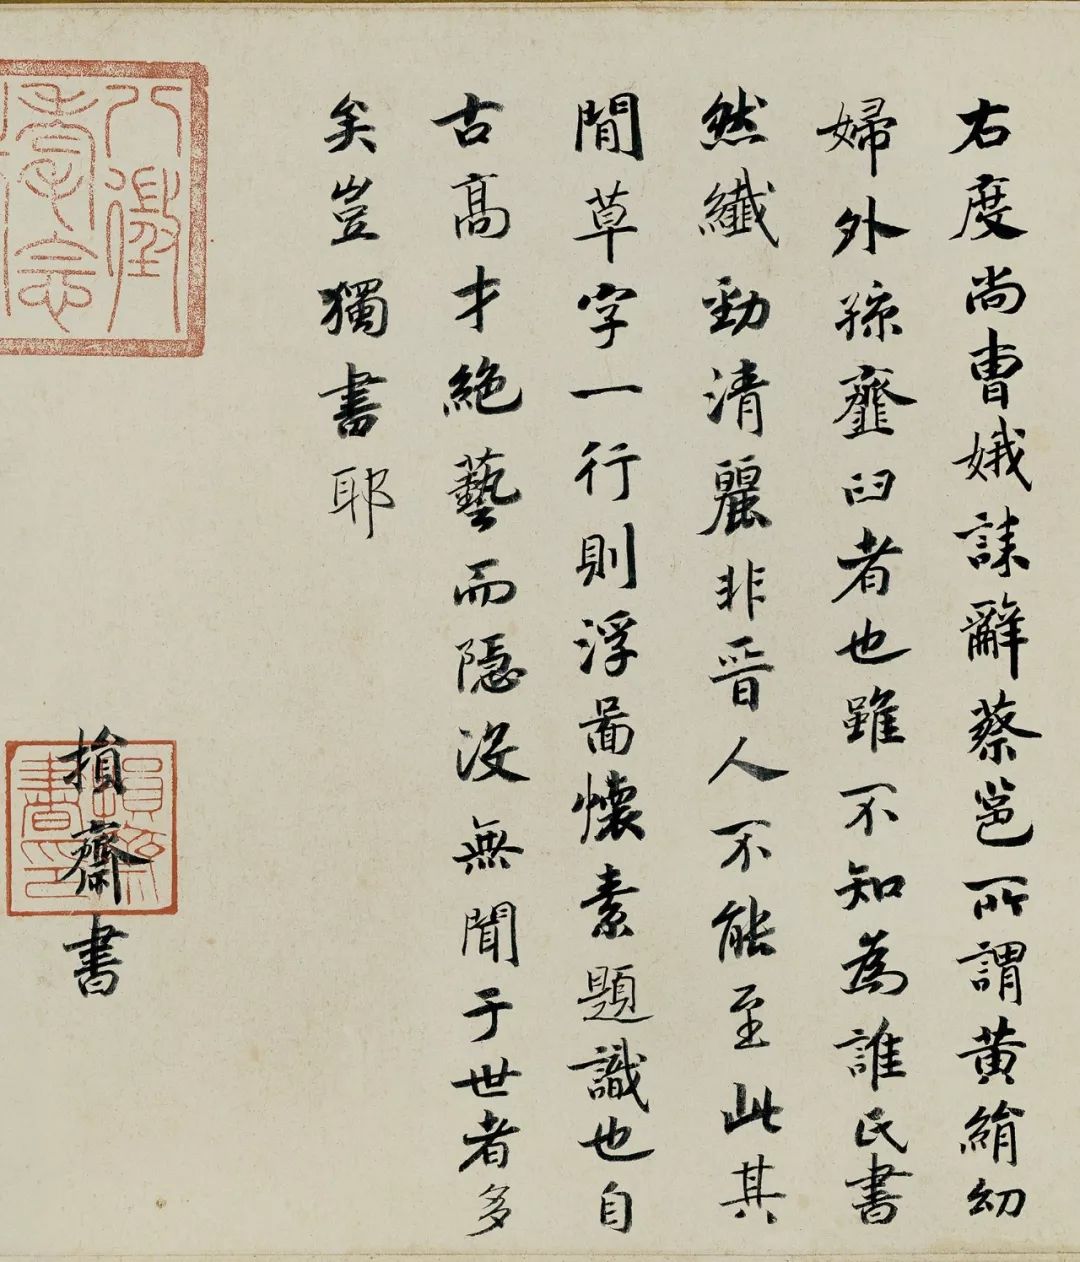 右度尚曹娥誄辭蔡邕所謂黄絹幼
婦外孫虀臼者也雖不知為誰氏書
然纖勁清麗非晉人不能至此其
閒草字一行則浮啚懷素題識也自
古高才絶藝而隱没無聞于世者多
矣豈獨書耶
損齋書
損齋書印